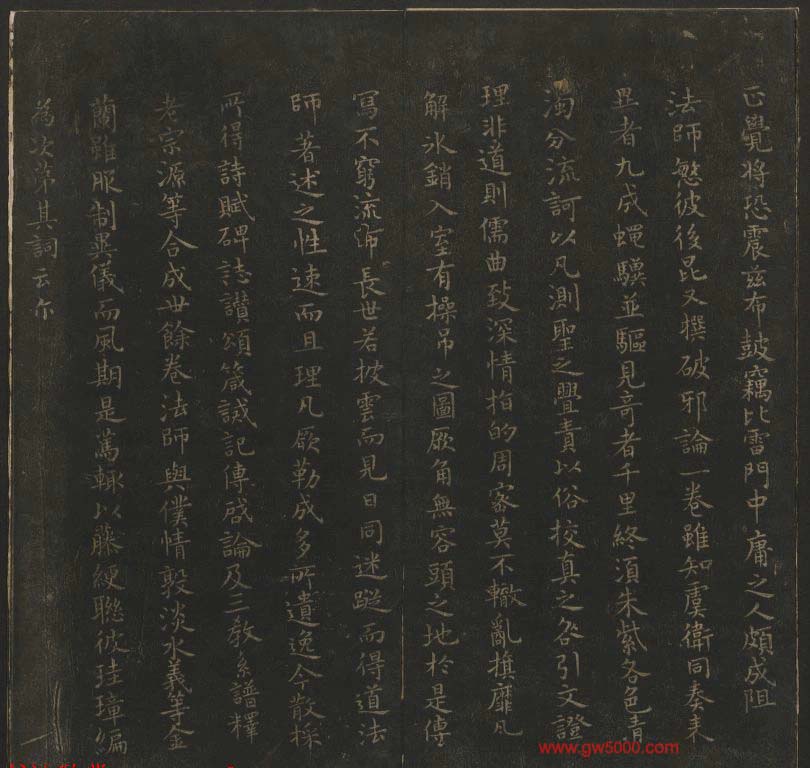 正覺將恐震茲布鼓竊比雷門中庸之人頗成阻
法師愍彼後昆又撰破邪論一卷雖知虞衛同奏表
異者九成蠅驥並驅見奇者千里終須朱紫各色清
濁分流訶以凡測聖之舋責以俗挍真之咎引文證
理非道則儒曲致深情指的周密莫不轍亂旗靡瓦
解氷銷入室有操吊之圖厥角無容頭之地於是傳
寫不窮流布長世若披雲而見日同迷蹤而得道法
師著述之性速而且理凡厥勒成多所遺逸今散採
所得詩賦碑誌讚頌箴誡記傳啓論及三教系譜釋
老宗源等合成卅餘卷法師與僕情敦淡水義等金
蘭雖服制異儀而風期是篤輙以藤綆聯彼珪璋編
為次第其詞云尒
www.gw5000.com